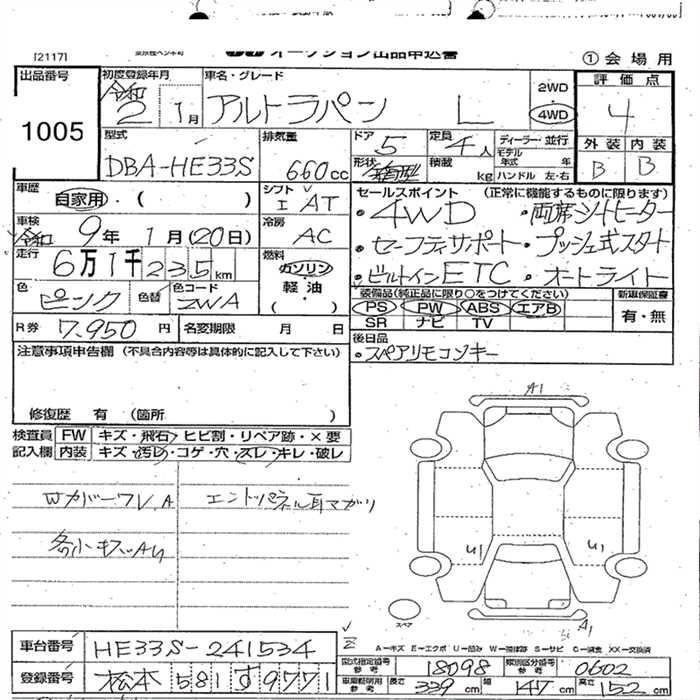 [2117]
オークション出品申込書
① 会場用
出品番号 1005
初度登録年月 令和 2 年 1月
車名・グレード アルトラパン L
2WD 4WD
評価点 4
型式 DBA-HE33S
排気量 660cc
ドア 5
定員 4人
形状
積載 kg
ディーラー・並行
モデル年式 年
ハンドル 左・右
外装 B
内装 B
車歴 自家用・( )
シフト I AT
車検 令和 9年 1月(20日)
冷房 AC
走行 6万1千235km
燃料 ガソリン 軽油 ( )
色 ピンク
色替
色コード ZWA
R券 7,950 円
名変期限 月 日
セールスポイント (正常に機能するものに限ります)
・4WD ・両席シートヒーター
・セーフティサポート・プッシュ式スタート
・ビルトインETC ・オートライト
装備品(純正品に限り○をつけてください)
新車保証書
PS PW ABS エアB
有・無
SR ナビ TV
後日品
・スペアリモコンキー
注意事項申告欄(不具合内容等は具体的に記入して下さい)
修復歴 有 (箇所 )
検査員記入欄
FW キズ・飛石・ヒビ割・リペア跡・×要
内装 キズ・汚レ・コゲ・穴・スレ・キレ・破レ
Wカバーワレ.A
各小キズ.AU
A1
U1
U1
A1
スペア
A-キズ E-エクボ U-凹ミ W-補修跡 S-サビ C-腐食 XX-交換済
車台番号 HE33S-241534
登録番号 松本 581 す 9771
型式指定番号 参考 18098
類別区分番号 参考 0602
車庫証明用 参考 長さ 339 cm 幅 147 cm 高さ 152 cm